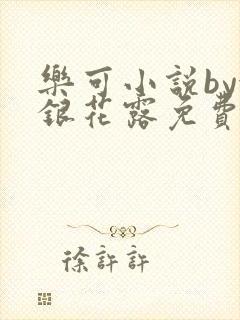 樂可小說by
銀花露免費
徐許許